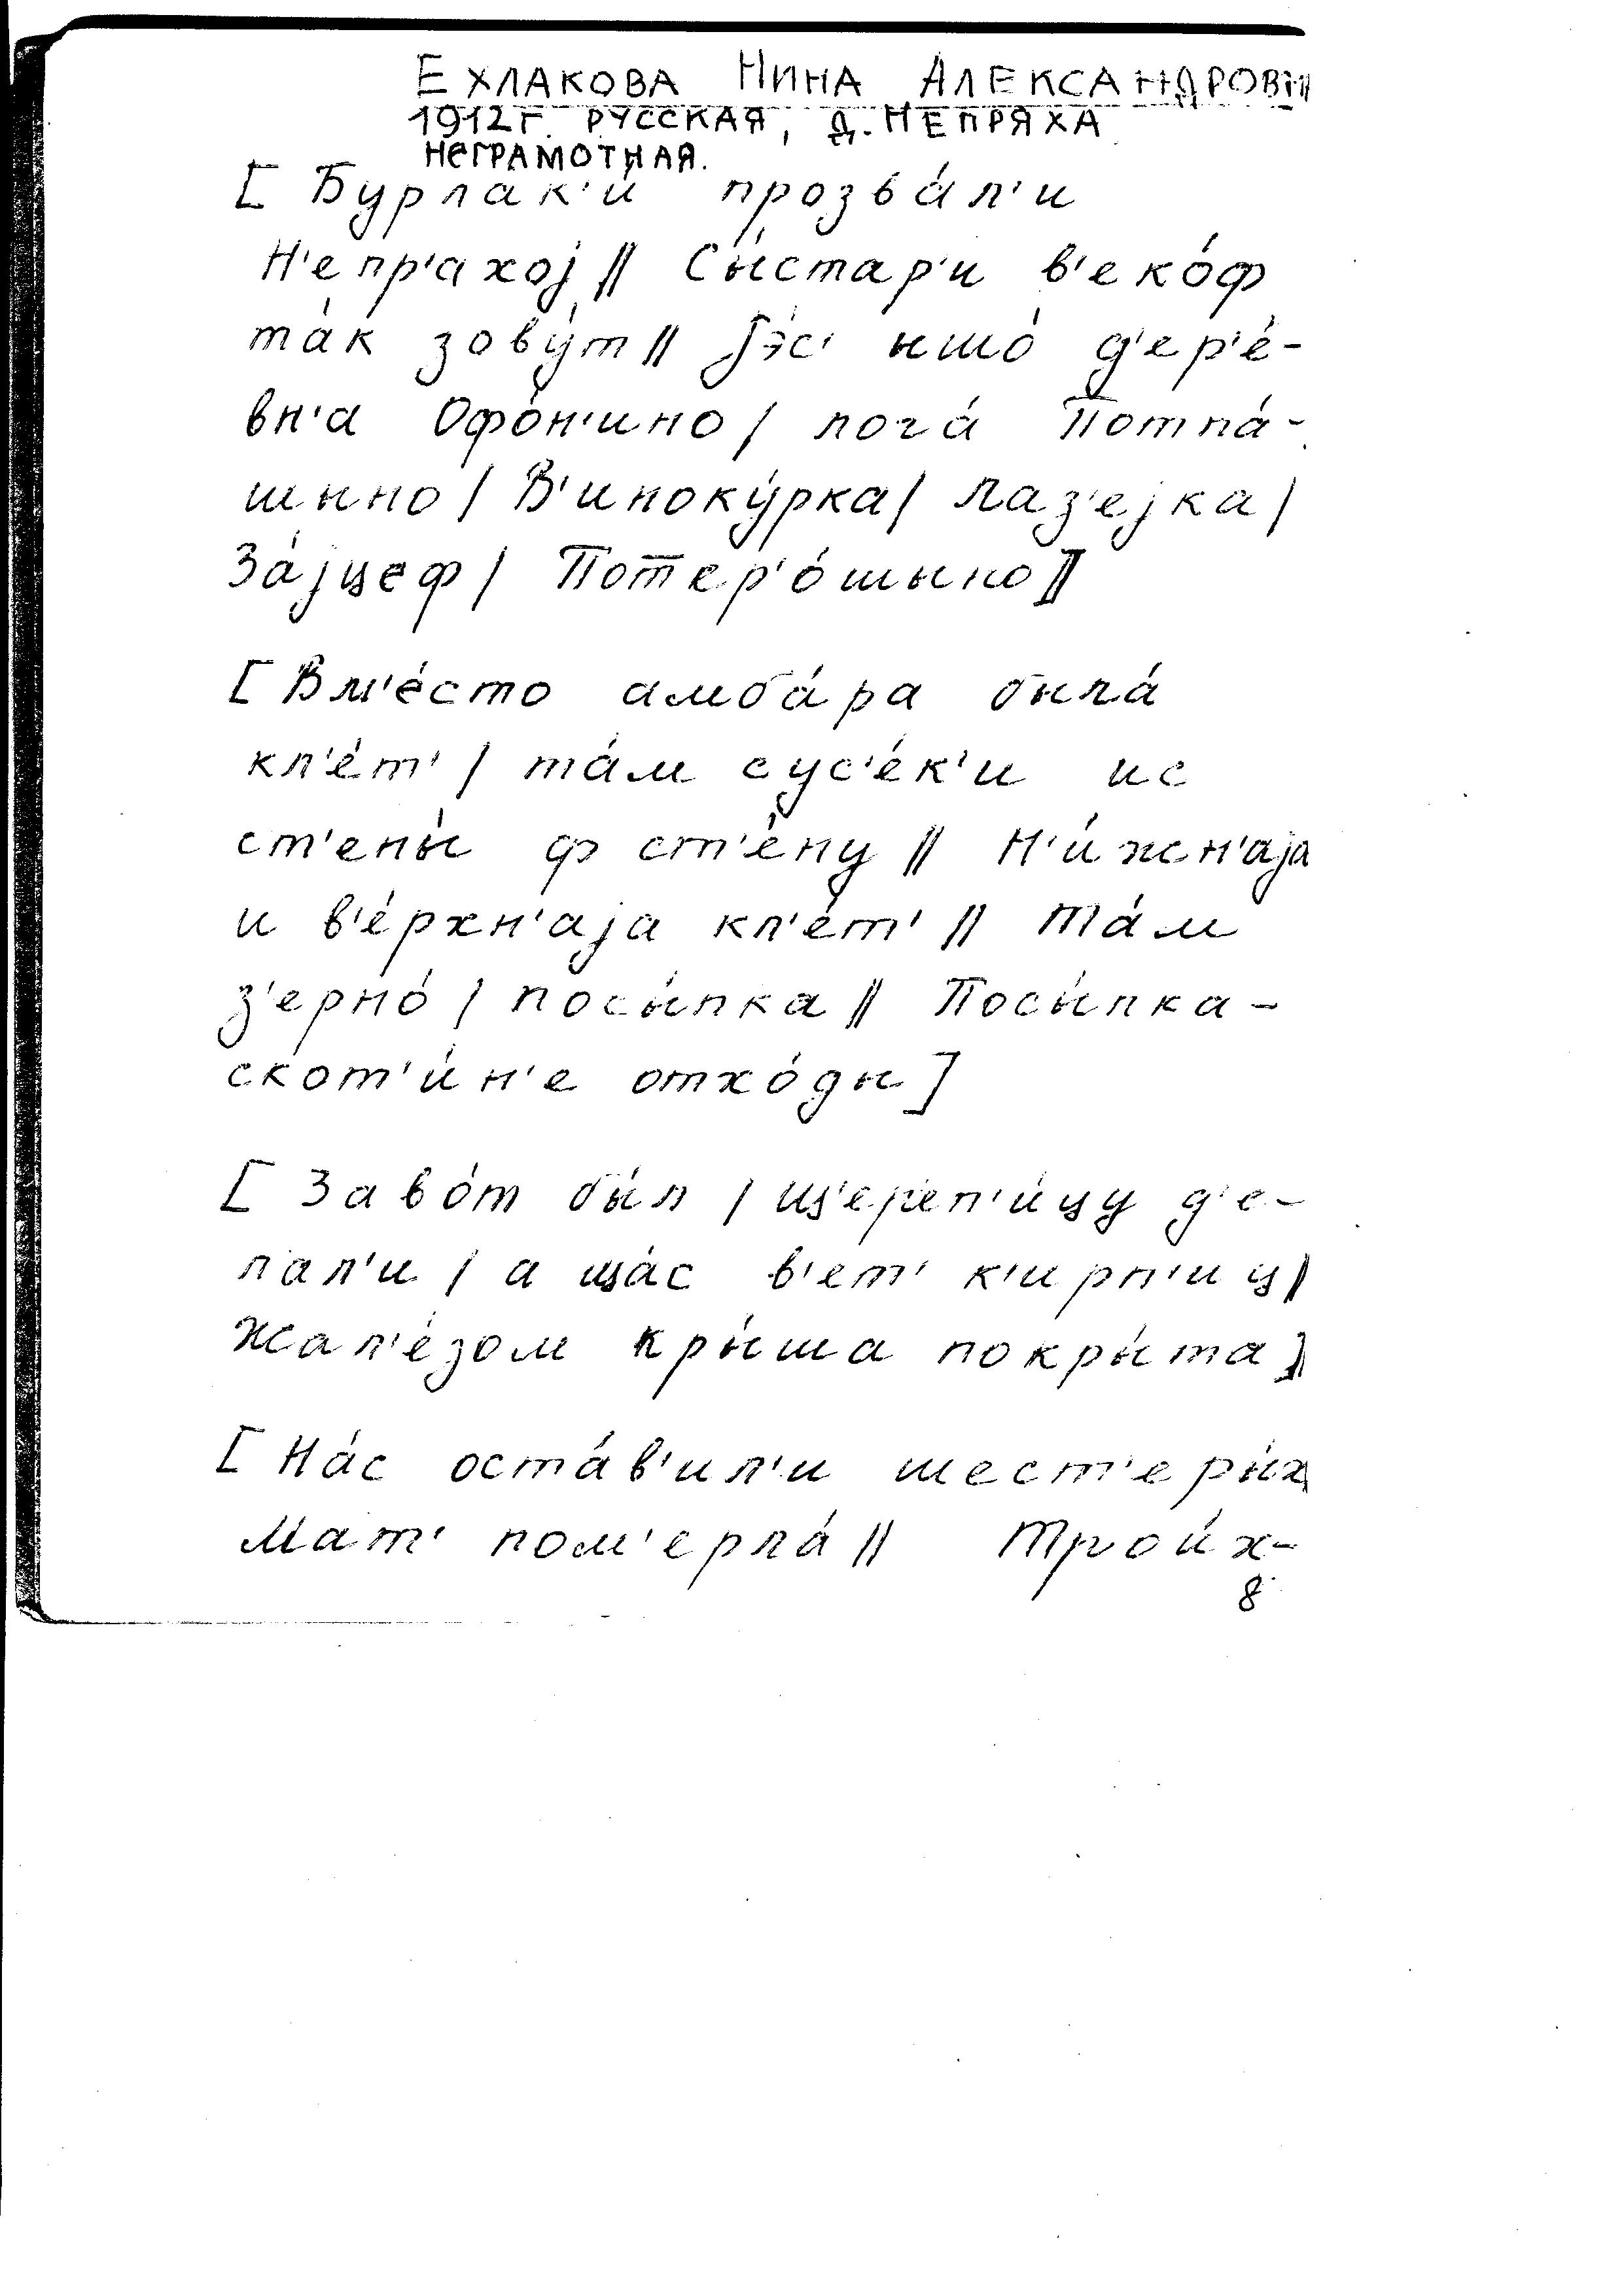 ЕХЛАКОВА НИНА АЛЕКСАНДРОВН
1912г. РУССКАЯ, д. НЕПРЯХА
НеГРАМОТНАЯ.
[ Бурлак'и́ прозва́л'и
Н'епр'ахој || Сы́стар'и в'еко́ф
та́к зову́т || Јэс' ышо́ д'ер'е́-
вн'а Офо́н'ино / лога́ Потпа́-
шыно / В'иноку́рка / Лаз'ејка /
За́јцеф / Потер'о́шыно ||]
[ Вм'е́сто амба́ра была́
кл'е́т' / та́м сус'е́к'и ис
ст'ены́ ф ст'е́ну || Н'и́жн'аја
и в'е́рхн'аја кл'е́т' || та́м
з'ерно́ / посы́пка || Посы́пка -
скот'и́н'е отхо́ды ]
[ Заво́т бы́л / ц'ер'еп'и́цу д'е-
лал'и / а ща́с в'ет' к'ирп'иц ||
Жал'е́зом кры́ша покры́та ||]
[ На́с оста́в'ил'и шест'еры́х
Мат' пом'ерла́ || Трои́х-
8